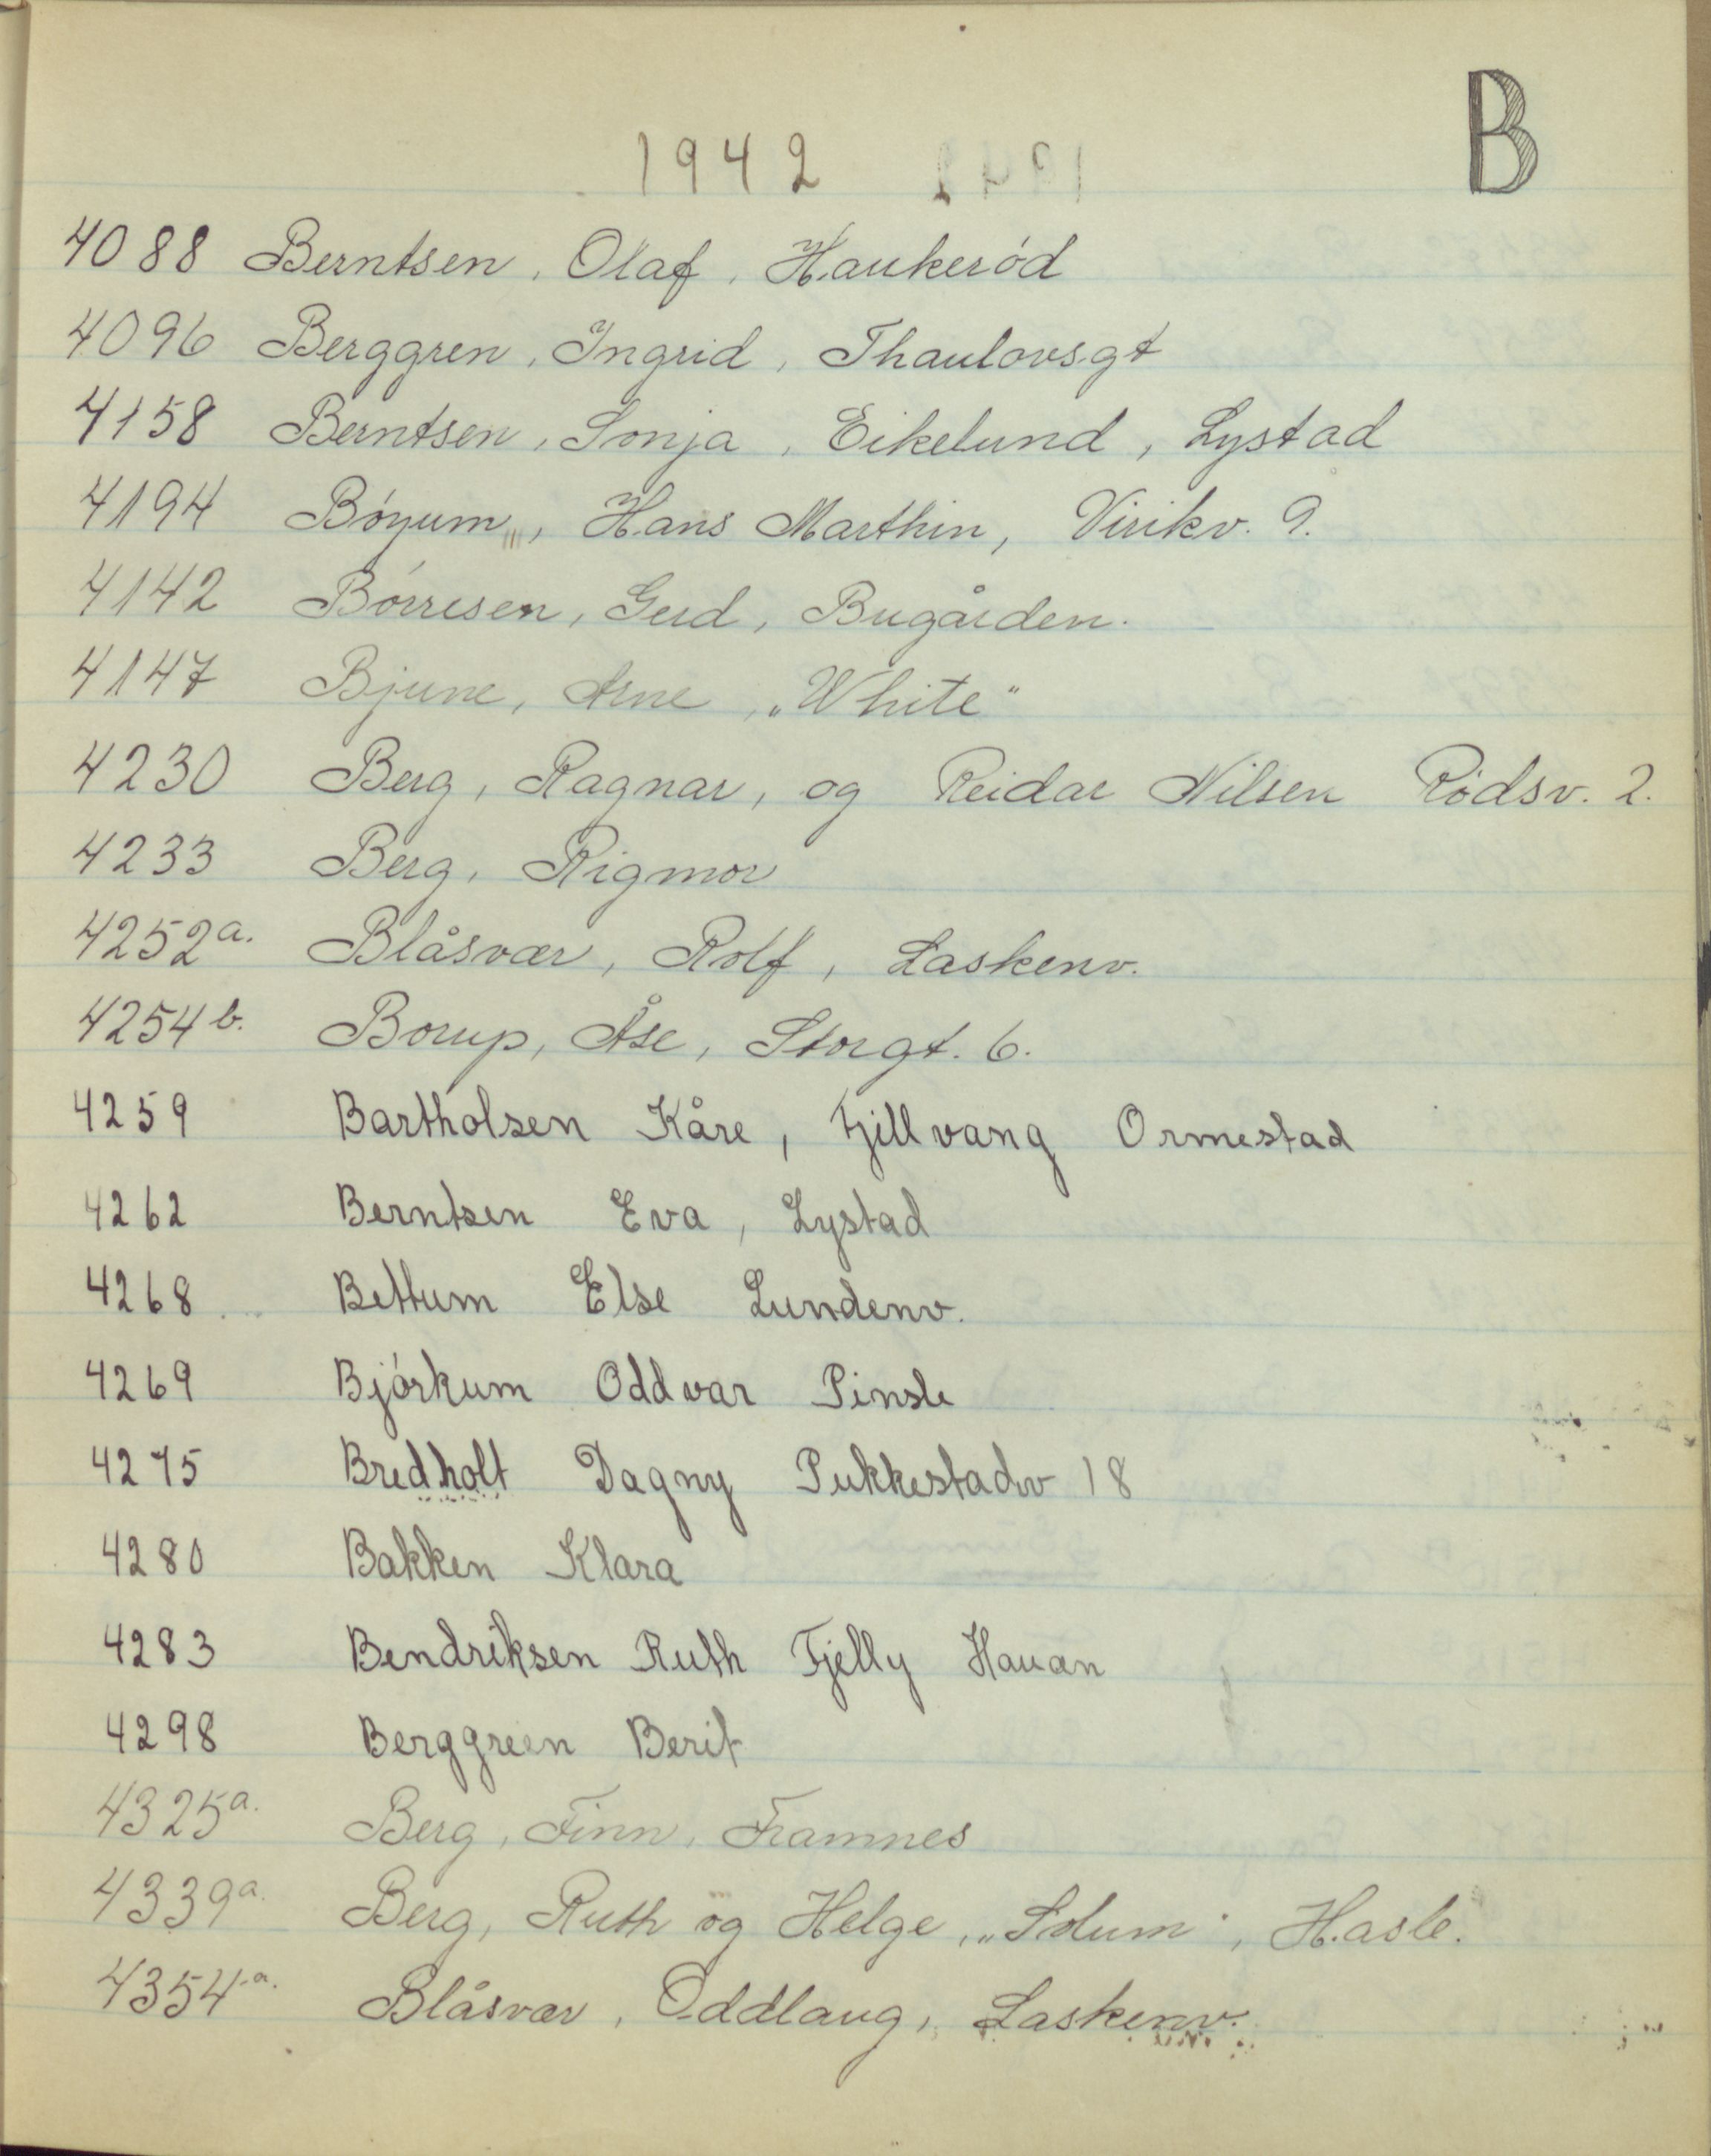 B
1942
4088 Berntsen, Olaf, Haukeród
4096 Berggren, Ingrid, Thaulovsgt
4158 Berntsen, Sonja, Eikelund, Lystad
4194 Bóyum, Hans Marthin, Virikv. 9.
4142 Bórresen, Gerd, Bugården.
4147 Bjune, Arne, „White"
4230 Berg, Ragnar, og Reidar Nilsen Ródsv. 2.
4233 Berg, Rigmor
4252a. Blåsvær, Rolf, Laskenv.
4254b. Borup, Åse, Storgt. 6.
4259 Bartholsen Kåre, Fjellvang Ormestad
4262 Berntsen Eva, Lystad
4268 Bettum Else Lundenv.
4269 Bjórkum Oddvar Pinsle
4275 Bredholt Dagny Pukkestadv 18
4280 Bakken Klara
4283 Bendriksen Ruth Fjelly Hauan
4298 Berggreen Berit
4325a. Berg, Finn, Framnes
4339a. Berg, Ruth og Helge, „Solum", Hasle.
4354a. Blåsvær, Oddlaug, Laskenv.